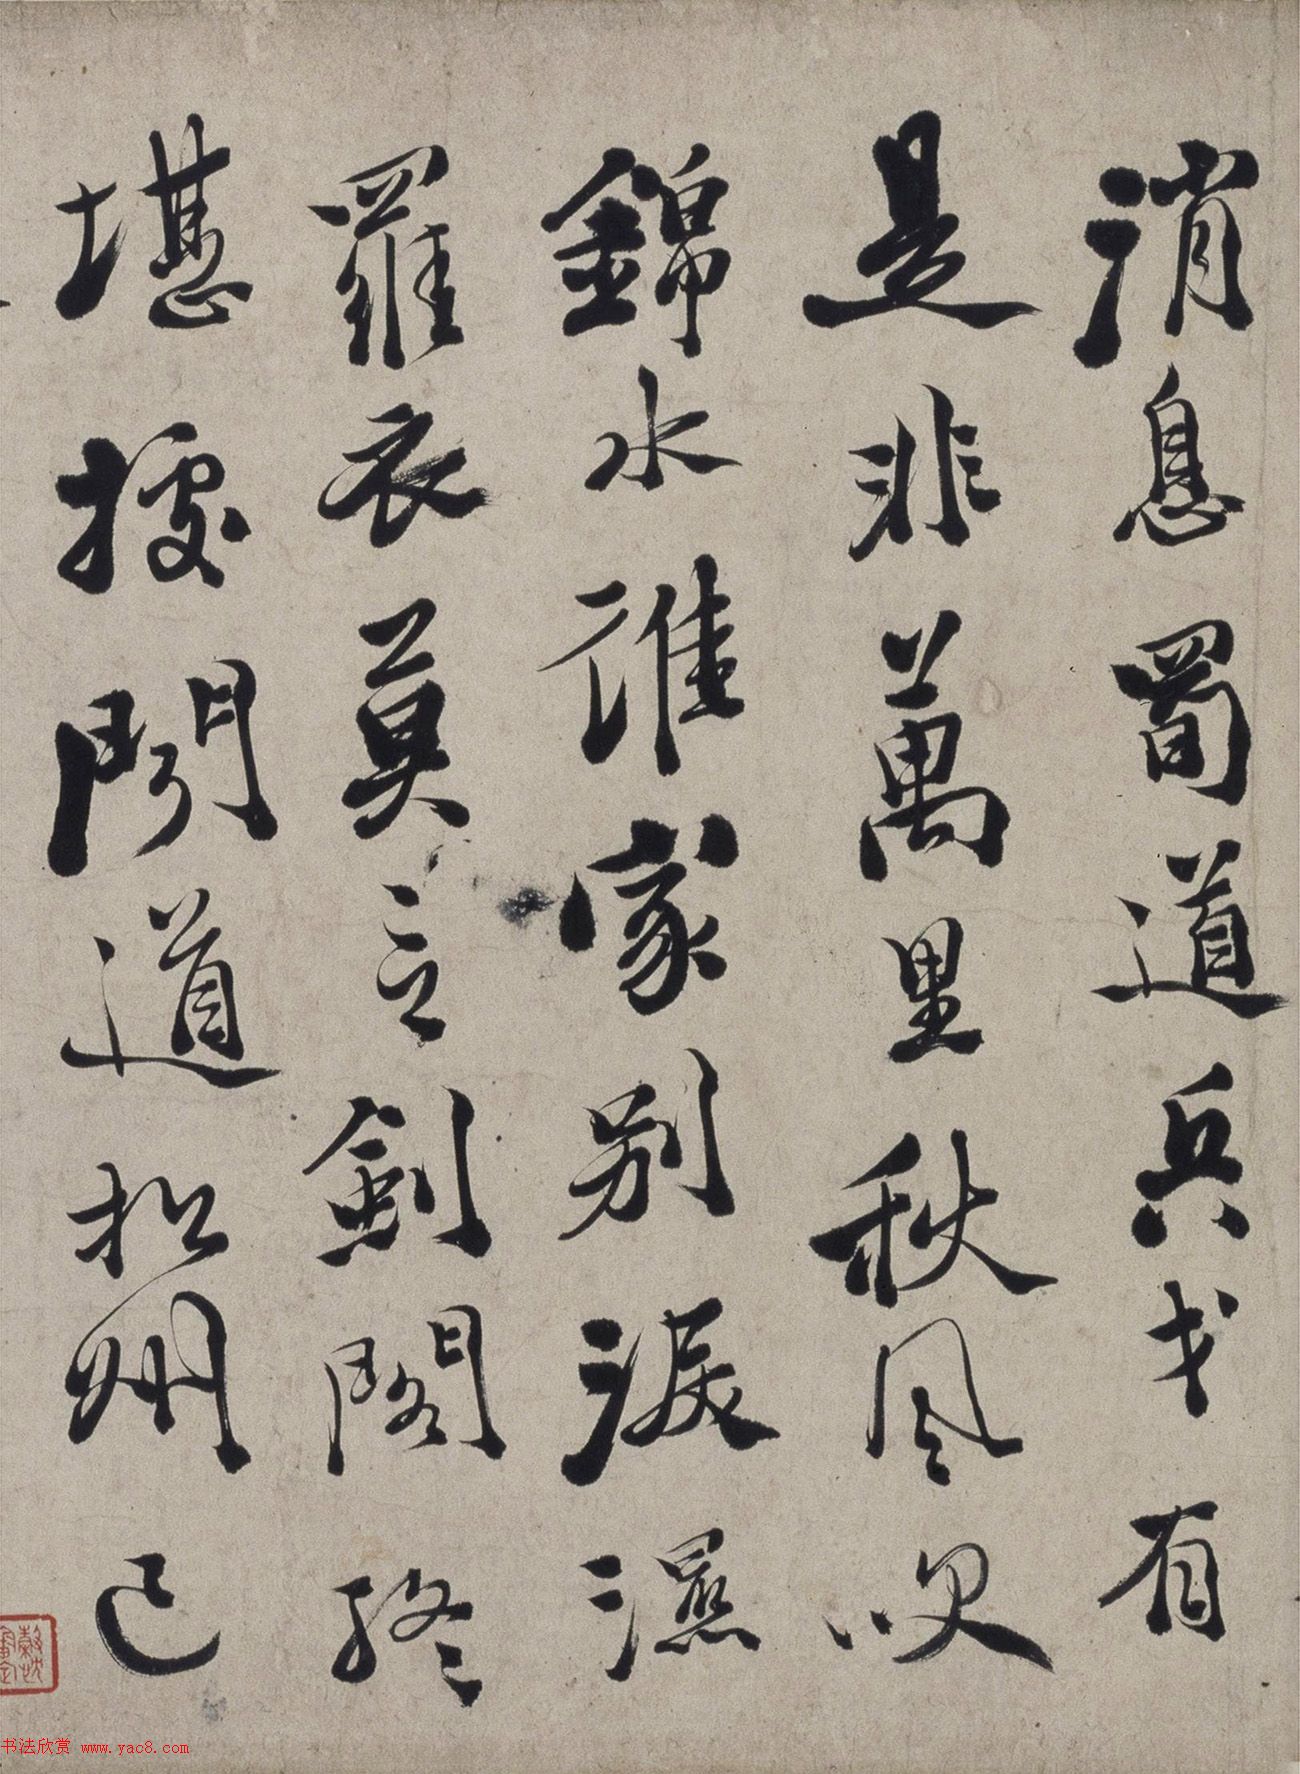 消息蜀道兵戈有
是非萬里秋風吹
錦水誰家别淚濕
羅衣莫言劍閣終
堪據聞道松州已
书法欣赏 www.yac8.com